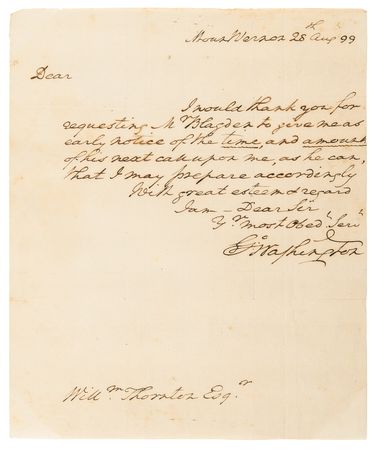 Mount Vernon 28th Augt 99
Dear
I would thank you for
requesting Mr Blagden to give me as
early notice of the time, and amount
of his next call upon me, as he can,
that I may prepare accordingly
With great esteem & regard
I am – Dear Sir
Yr most Obedt Servt
Go Washington
Willm Thornton Esqr